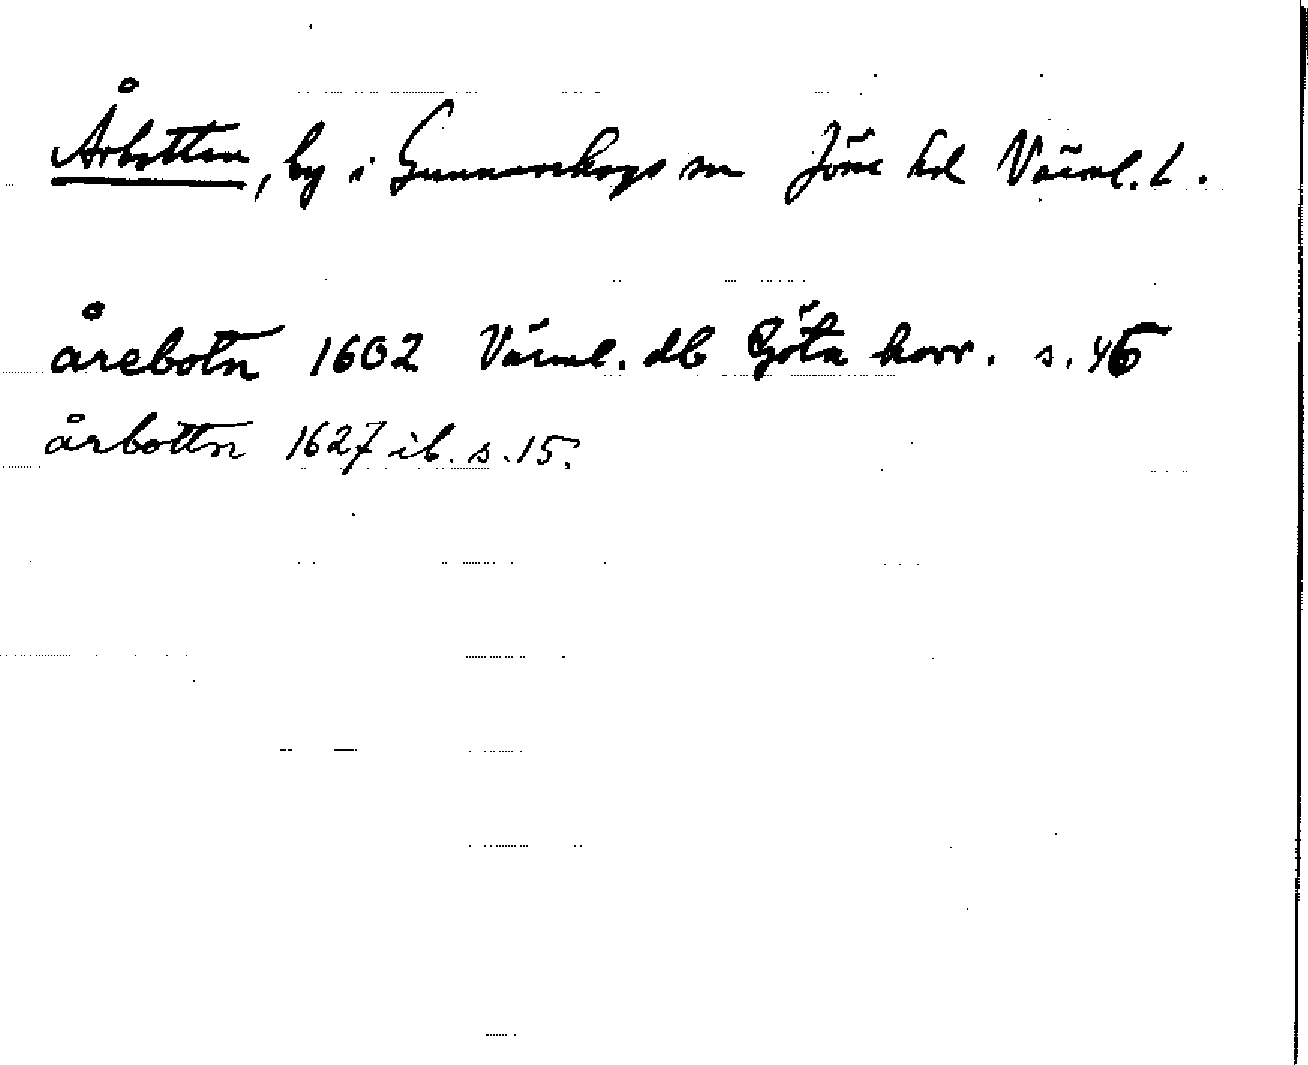 Årbotten, by i Gunnarskogs sn Jöse hd Värml. L.
årebotn 1602 Värml. db Göta hovr. s. 46
årbottn 1627 ib. s. 15.